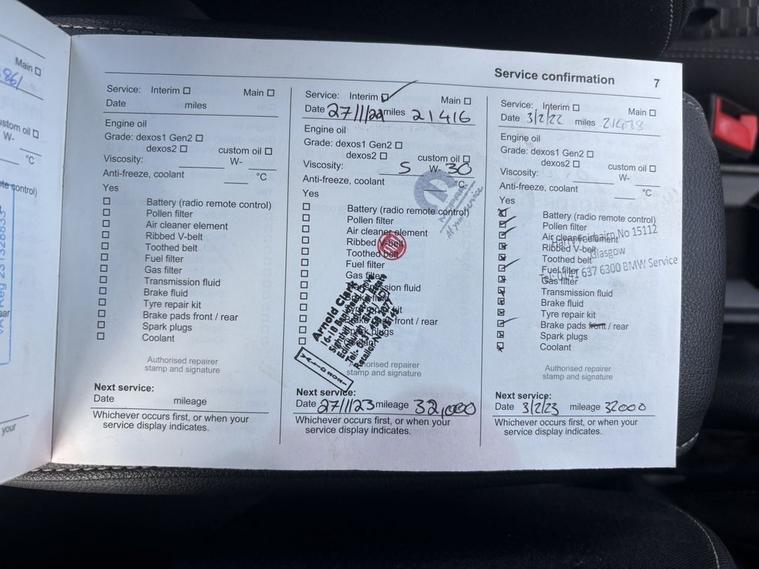 Service confirmation 7
Main
Service: Interim Main
Date miles
Engine oil
Grade: dexos1 Gen2
dexos2 custom oil
Viscosity: W-
Anti-freeze, coolant °C
Yes
Battery (radio remote control)
Pollen filter
Air cleaner element
Ribbed V-belt
Toothed belt
Fuel filter
Gas filter
Transmission fluid
Brake fluid
Tyre repair kit
Brake pads front / rear
Spark plugs
Coolant
Authorised repairer
stamp and signature
Next service:
Date mileage
Whichever occurs first, or when your
service display indicates.
Service: Interim Main
Date miles 21416
Engine oil
Grade: dexos1 Gen2
dexos2 custom oil
Viscosity: 5 W- 30
Anti-freeze, coolant °C
Yes
Battery (radio remote control)
Pollen filter
Air cleaner element
Ribbed V-belt
Toothed belt
Fuel filter
Gas filter
Arnold Clark
Authorised repairer
stamp and signature
Next service:
Date 27/11/23 mileage 32,000
Whichever occurs first, or when your
service display indicates.
Service: Interim Main
Date 3/2/22 miles
Engine oil
Grade: dexos1 Gen2
dexos2 custom oil
Viscosity: W-
Anti-freeze, coolant °C
Yes
Battery (radio remote control)
Pollen filter
Air cleaner element
No 15112
Ribbed V-belt
Glasgow
Toothed belt
Fuel filter
637 6300 BMW Service
Gas filter
Transmission fluid
Brake fluid
Tyre repair kit
Brake pads front / rear
Spark plugs
Coolant
Authorised repairer
stamp and signature
Next service:
Date 3/2/23 mileage 32000
Whichever occurs first, or when your
service display indicates.